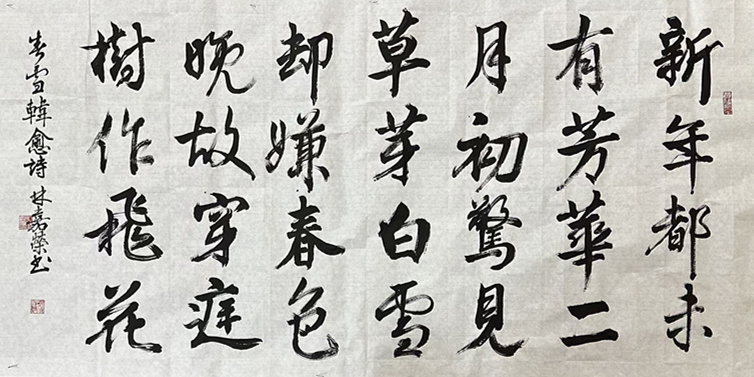 新年都未
有芳華二
月初驚見
草芽白雪
却嫌春色
晚故穿庭
樹作飛花
春雪韓愈詩 林嘉榮书